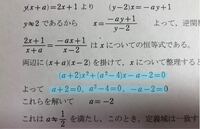 y(x+a)=2x+1 より (y-2)x=-ay+1
y≠2 であるから x=\frac{-ay+1}{y-2} よって，逆関
\frac{2x+1}{x+a}=\frac{-ax+1}{x-2} は x についての恒等式である。
両辺に(x+a)(x-2) を掛けて，x について整理すると
(a+2)x²+(a²-4)x-a-2=0
よって a+2=0, a²-4=0, -a-2=0
これらを解いて a=-2
これは a≠\frac{1}{2} を満たし，このとき，定義域は一致す